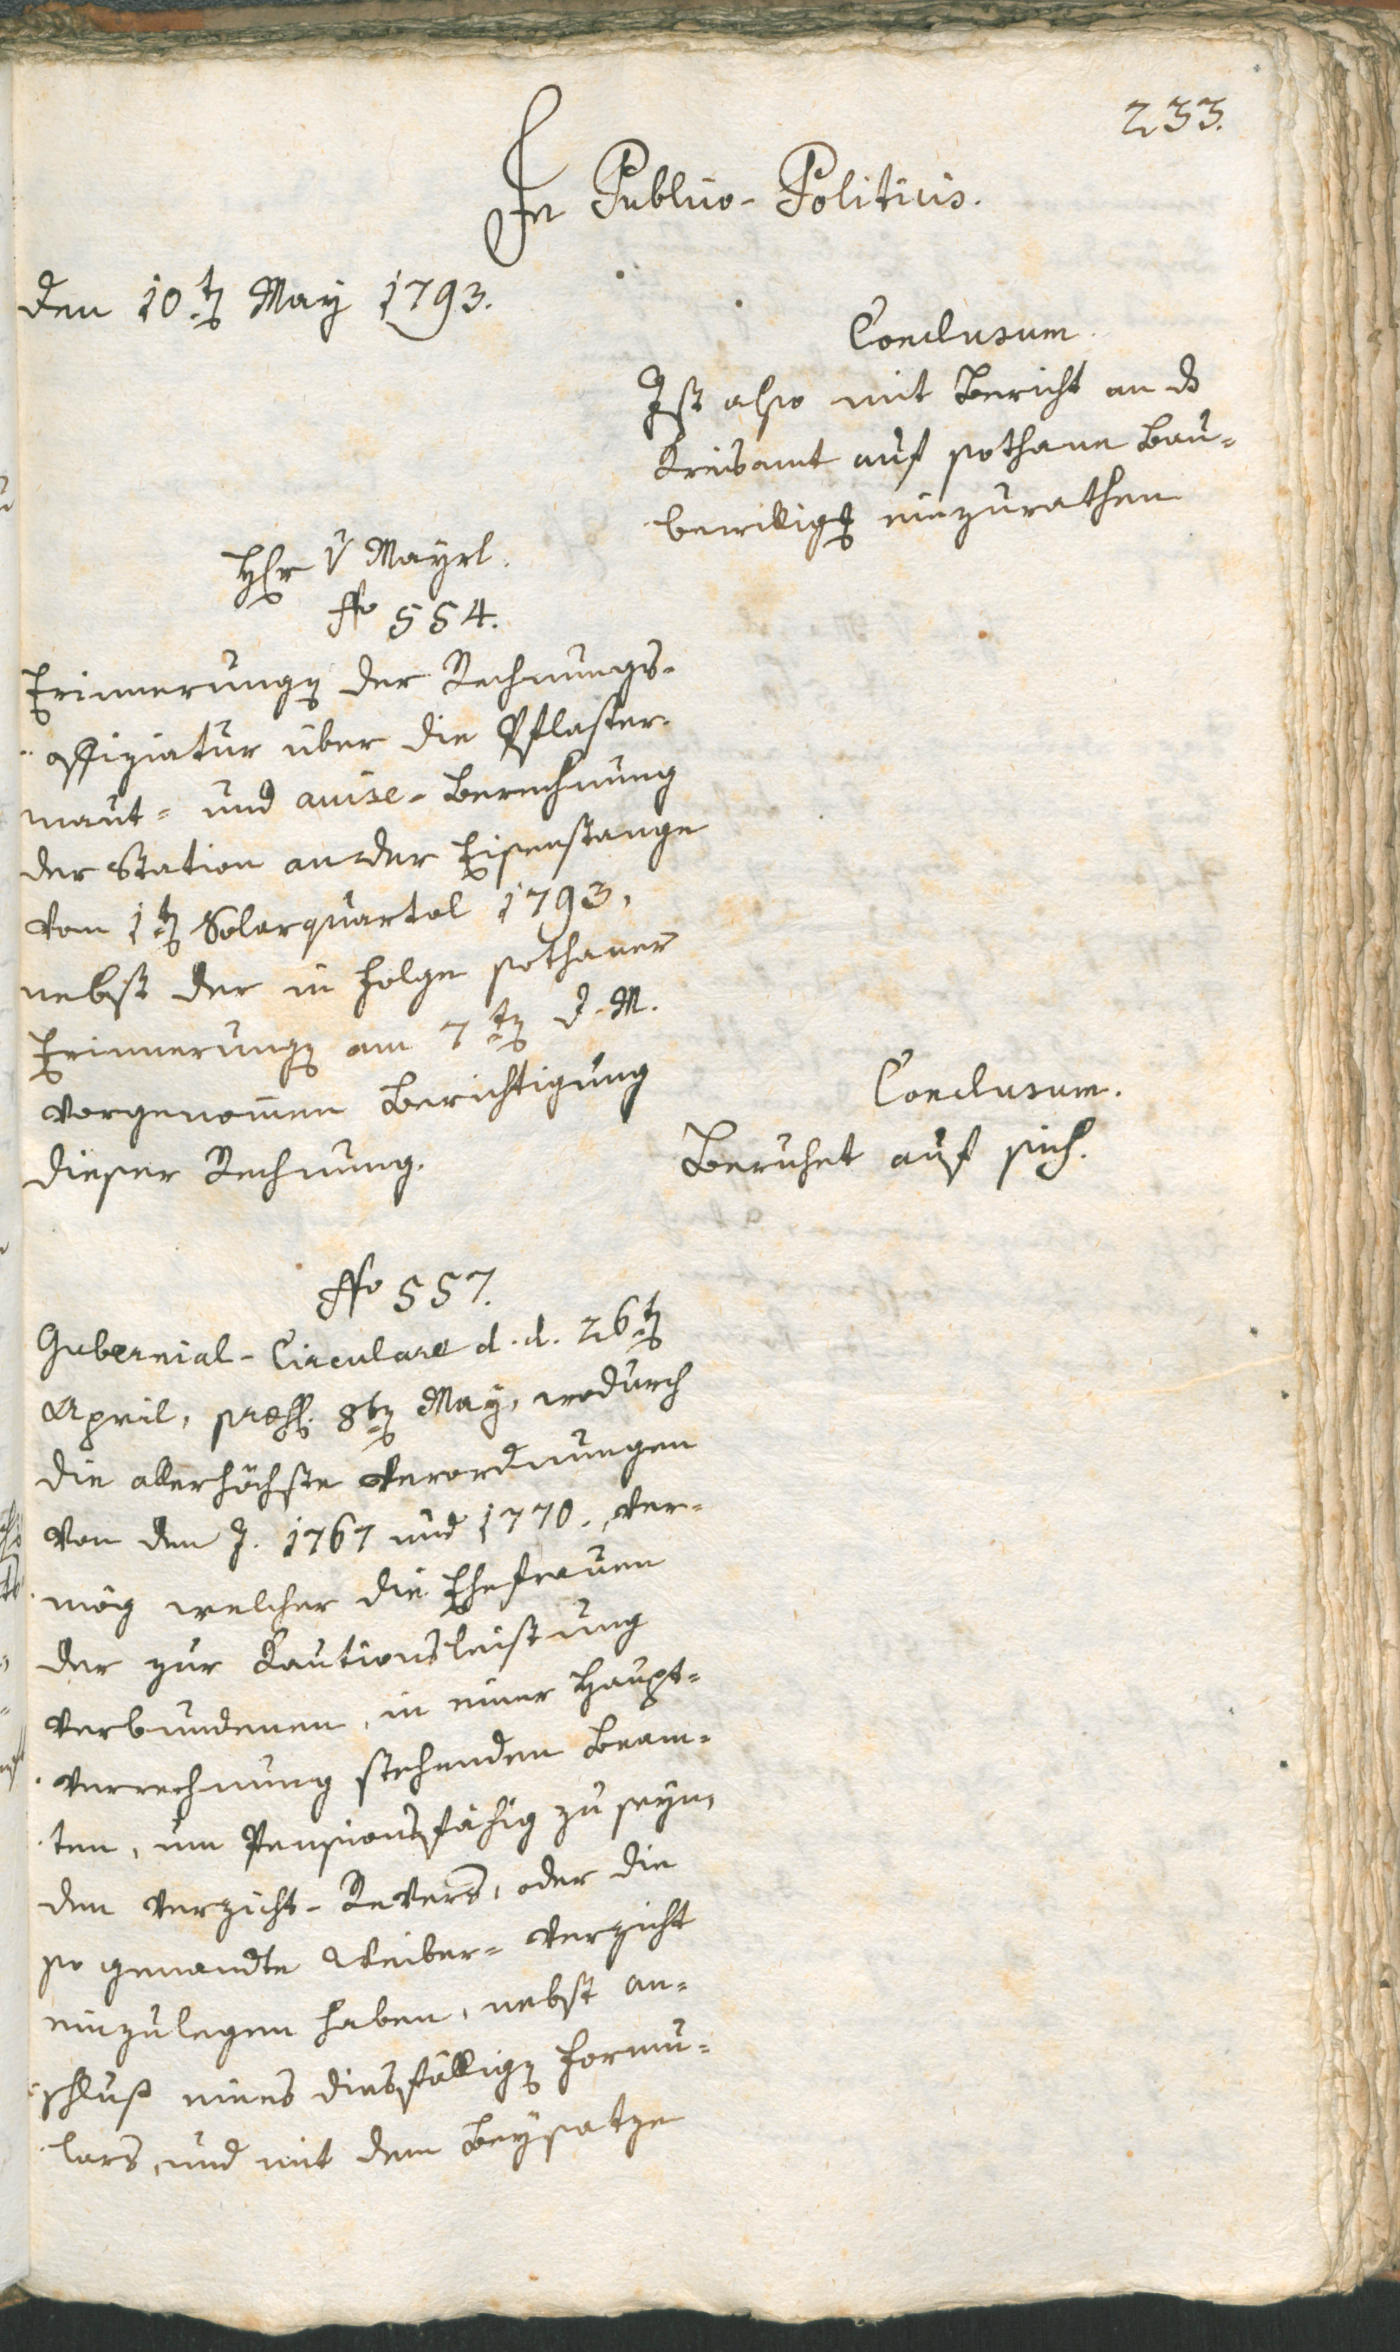 233.
In Publico-Politicis.
den 10.ten May 1793.
Conclusum.
Ist also mit Bericht an das
Kreisamt auf sothane Bau=
bewilligg einzurathen
Hr v Mayrl.
No 554.
Erinnerungen der Rechnungs-
offiziatur über die Pflaster-
maut= und accise-Berechnung
der Station an der Eisenstange
vom 1ten Solarquartal 1793,
nebst der in Folge sothaner
Erinnerungen am 7ten d. M.
vorgenommen Berichtigung
dieser Rechnung.
Conclusum.
Beruhet auf sich.
No 557.
Gubernial-Circulare d. d. 26ten
April, praes. 8ten May, wodurch
die allerhöchste Verordnungen
von den J. 1767 und 1770., ver=
mög welcher die Ehefrauen
der zur Kautionsleistung
verbundenen, in einer Haupt=
verrechnung stehenden Beam=
ten, um Pensionsfähig zu seyn,
den Verzicht-Revers, oder die
so genandte Weiber= Verzicht
einzulegen haben, nebst an=
schluß eines diesfälligen Formu=
lars, und mit dem Beysatze